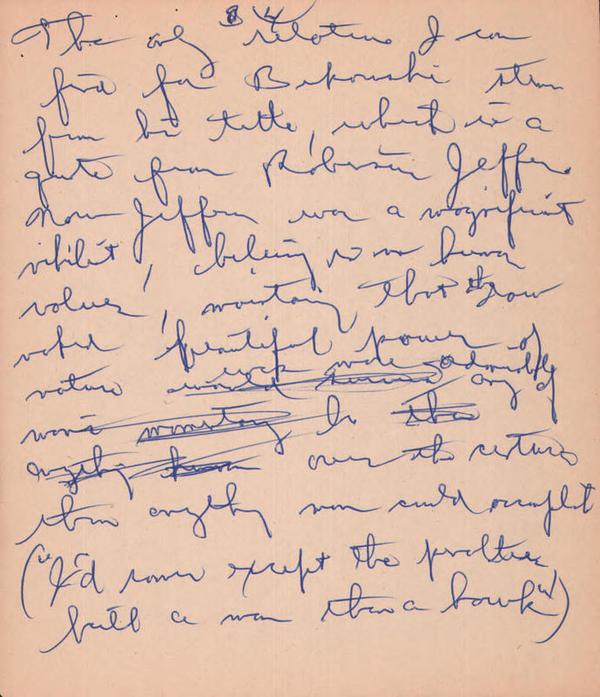 The only relations I can
find for Bukowski stem
from his title, which is a
quote from Robinson Jeffers.
Now Jeffers was a magnificent
nihilist, believing in no human
values, maintaining that the raw
naked beautiful power of
rock made admirably
nature would survive any of
man's
anything human over the centuries
than anything man could accomplish
("I'd sooner except the penalties
kill a man than a hawk")